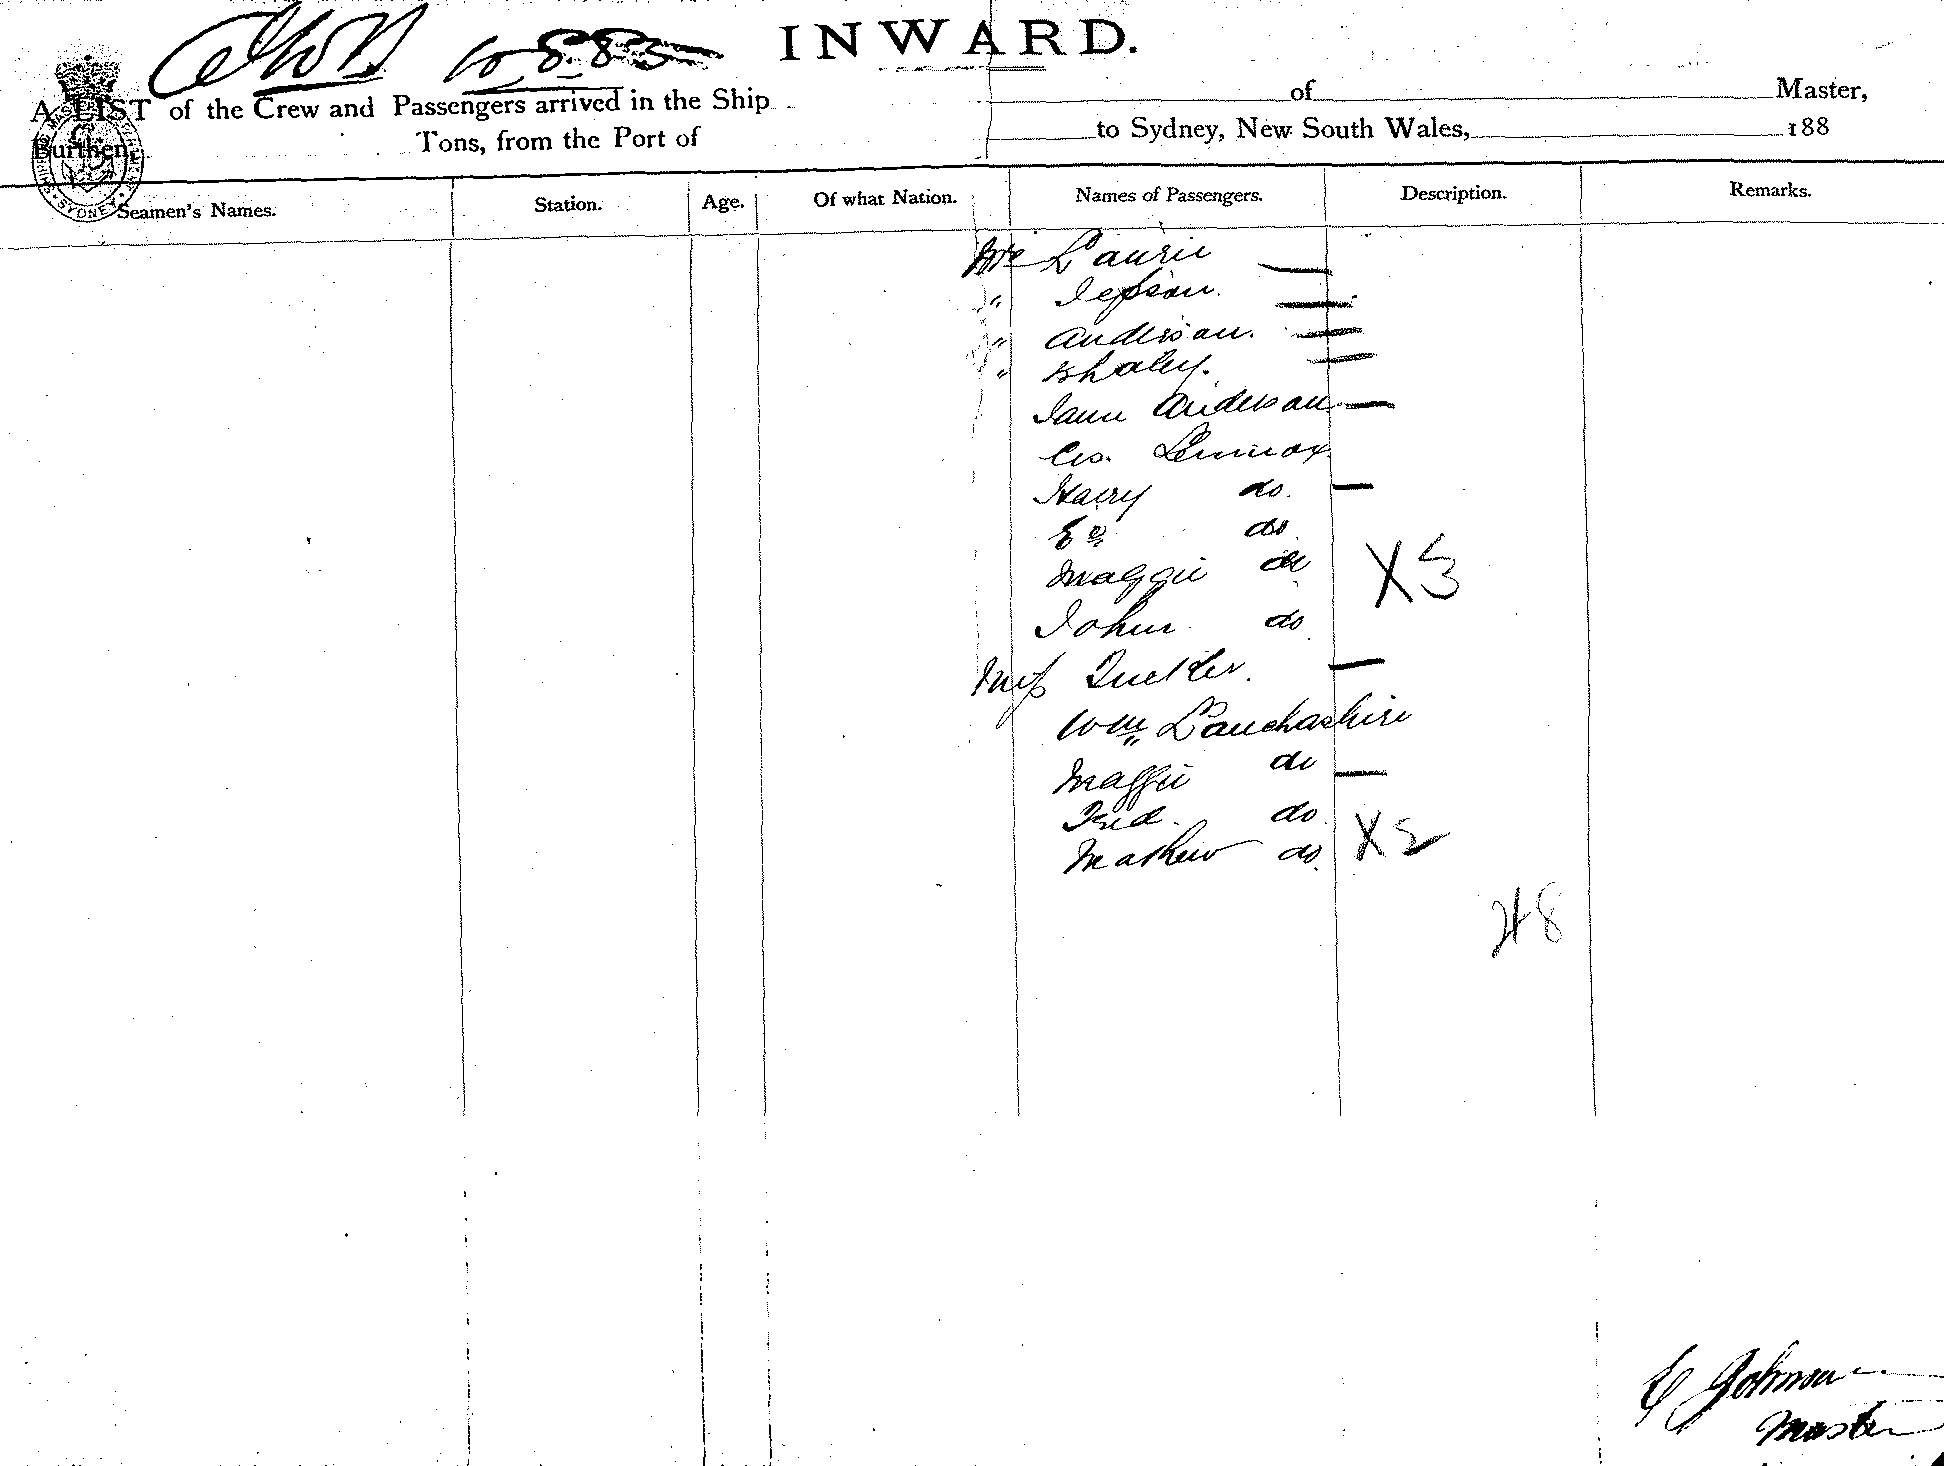 INWARD.
10.8.83
A LIST of the Crew and Passengers arrived in the Ship of Master,
Burthen, Tons, from the Port of to Sydney, New South Wales, 188
Seamen's Names. Station. Age. Of what Nation. Names of Passengers. Description. Remarks.
Laurie
" Jepson.
" Anderson.
" Whaley.
Jane Anderson
Lennox
Harry do.
do
Maggie do
John do
Miss
Wm Lanchashire
Maggie do
Fred. do
Mathew do.
48
Johnson
Master
SYDNEY